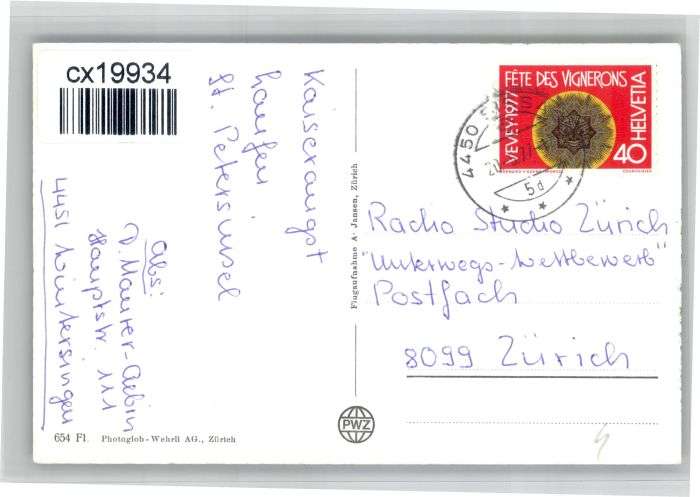 cx19934
Kaiseraugst
Laufen
St. Petersinsel
Abs:
D. Maurer-Aebin
Hauptstr. 111
4451 Wintersingen
654 Fl. Photoglob-Wehrli AG., Zürich
Flugaufnahme A. Jansen, Zürich
PWZ
FÊTE DES VIGNERONS
VEVEY·1977
HELVETIA
40
COURVOISIER
4450
5d
Radio Studio Zürich
"Unterwegs-Wettbewerb"
Postfach
8099 Zürich